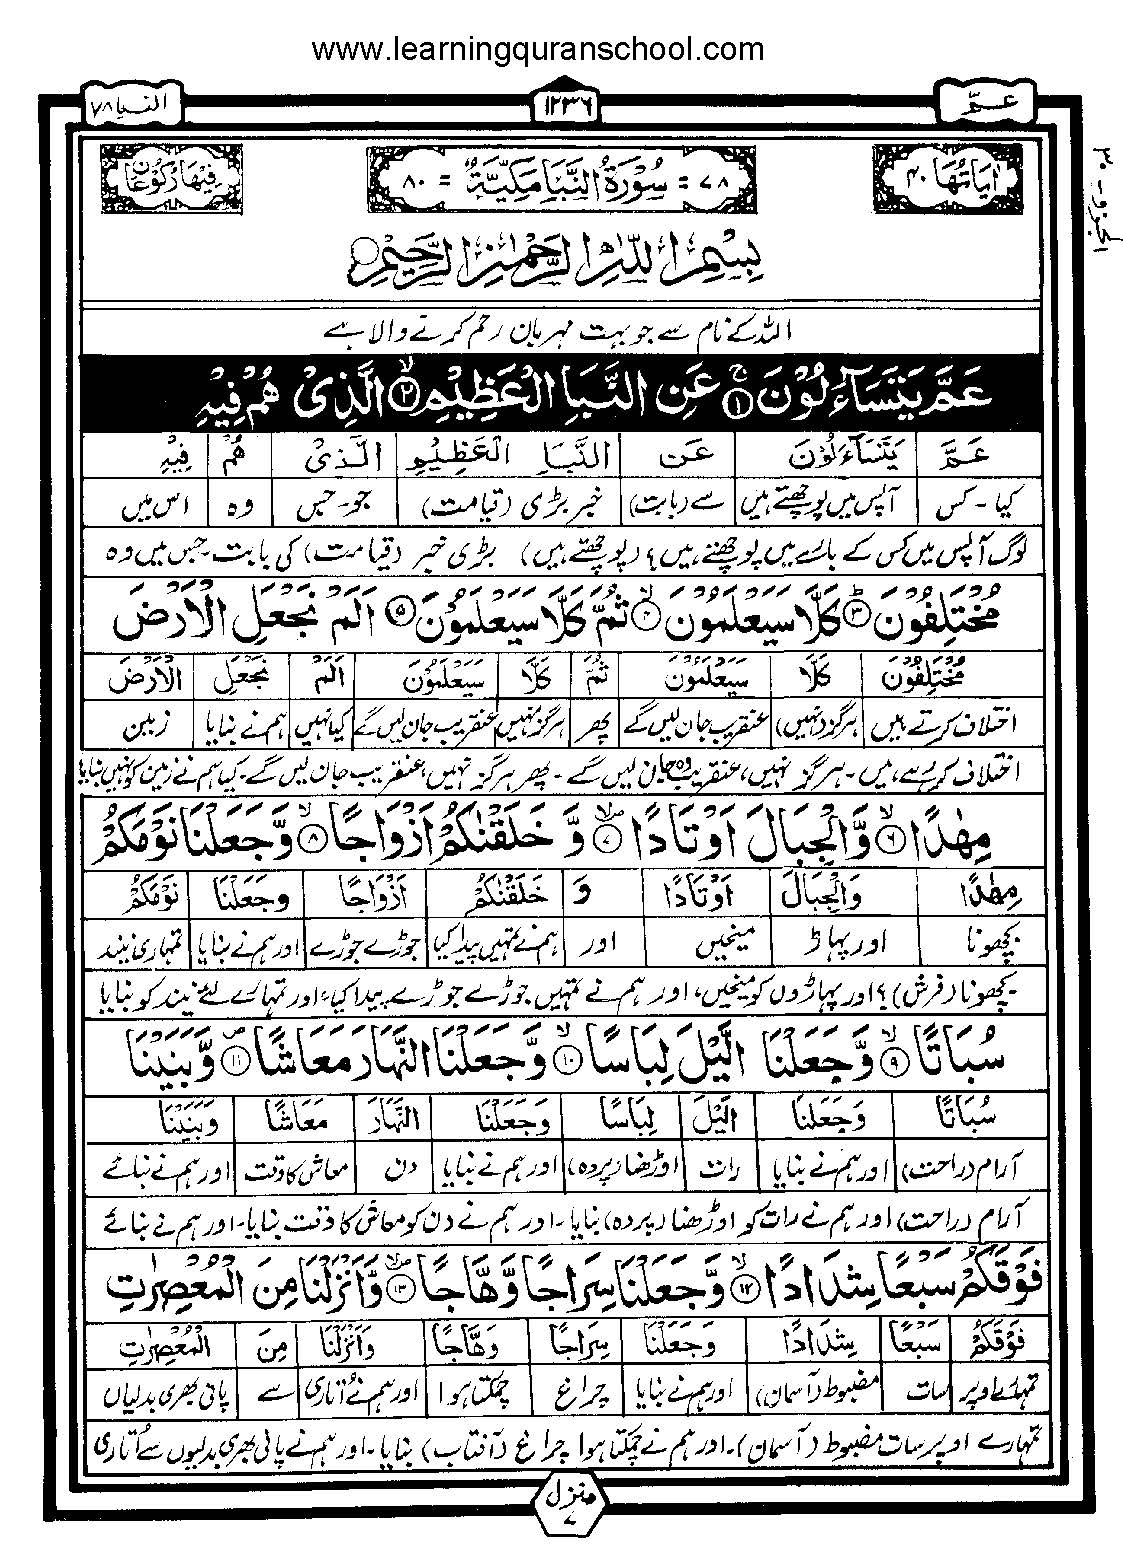 www.learningquranschool.com
عمّ
١٢٣٦
النبا ٧٨
الجزو - ٣٠
اٰیَاتُهَا ٤٠
٧٨ = سُوْرَةُ النَّبَاِ مَكِّيَّةٌ = ٨٠
فِيْهَا رُكُوْعَانِ
بِسْمِ اللّٰهِ الرَّحْمٰنِ الرَّحِيْمِ
اللہ کے نام سے جو بہت مہربان رحم کرنے والا ہے
عَمَّ يَتَسَآءَلُوْنَ ۚ ١ عَنِ النَّبَاِ الْعَظِيْمِ ۙ ٢ الَّذِیْ هُمْ فِيْهِ
عَمَّ يَتَسَآءَلُوْنَ عَنِ النَّبَاِ الْعَظِيْمِ الَّذِیْ هُمْ فِيْهِ
کیا - کس آپس میں پوچھتے ہیں سے (بابت) خبر بڑی (قیامت) جو - جس وہ اس میں
لوگ آپس میں کس کے بارے میں پوچھتے ہیں؟ (پوچھتے ہیں) بڑی خبر (قیامت) کی بابت - جس میں وہ
مُخْتَلِفُوْنَ ؕ ٣ كَلَّا سَيَعْلَمُوْنَ ۙ ٤ ثُمَّ كَلَّا سَيَعْلَمُوْنَ ٥ اَلَمْ نَجْعَلِ الْاَرْضَ
مُخْتَلِفُوْنَ كَلَّا سَيَعْلَمُوْنَ ثُمَّ كَلَّا سَيَعْلَمُوْنَ اَلَمْ نَجْعَلِ الْاَرْضَ
اختلاف کرتے ہیں ہرگز نہیں) عنقریب جان لیں گے پھر ہرگز نہیں عنقریب جان لیں گے کیا نہیں ہم نے بنایا زمین
اختلاف کر رہے ہیں - ہرگز نہیں، عنقریب وہ جان لیں گے - پھر ہرگز نہیں، عنقریب جان لیں گے - کیا ہم نے زمین کو نہیں بنایا
مِهٰدًا ۙ ٦ وَّالْجِبَالَ اَوْتَادًا ۙ ٧ وَّ خَلَقْنٰكُمْ اَزْوَاجًا ۙ ٨ وَّجَعَلْنَا نَوْمَكُمْ
مِهٰدًا وَالْجِبَالَ اَوْتَادًا وَ خَلَقْنٰكُمْ اَزْوَاجًا وَجَعَلْنَا نَوْمَكُمْ
بچھونا اور پہاڑ میخیں اور ہم نے تمہیں پیدا کیا جوڑے جوڑے اور ہم نے بنایا تمہاری نیند
بچھونا (فرش)؟ اور پہاڑوں کو میخیں، اور ہم نے تمہیں جوڑے جوڑے پیدا کیا، اور تمہارے لئے نیند کو بنایا
سُبَاتًا ۙ ٩ وَّجَعَلْنَا الَّيْلَ لِبَاسًا ۙ ١٠ وَّجَعَلْنَا النَّهَارَ مَعَاشًا ۪ ١١ وَّبَنَيْنَا
سُبَاتًا وَجَعَلْنَا الَّيْلَ لِبَاسًا وَجَعَلْنَا النَّهَارَ مَعَاشًا وَبَنَيْنَا
آرام (راحت) اور ہم نے بنایا رات اوڑھنا (پردہ) اور ہم نے بنایا دن معاش کا وقت اور ہم نے بنائے
آرام (راحت) اور ہم نے رات کو اوڑھنا (پردہ) بنایا - اور ہم نے دن کو معاش کا وقت بنایا - اور ہم نے بنائے
فَوْقَكُمْ سَبْعًا شِدَادًا ۙ ١٢ وَّجَعَلْنَا سِرَاجًا وَّهَّاجًا ۪ ١٣ وَّاَنْزَلْنَا مِنَ الْمُعْصِرٰتِ
فَوْقَكُمْ سَبْعًا شِدَادًا وَجَعَلْنَا سِرَاجًا وَهَّاجًا وَاَنْزَلْنَا مِنَ الْمُعْصِرٰتِ
تمہارے اوپر سات مضبوط (آسمان) اور ہم نے بنایا چراغ چمکتا ہوا اور ہم نے اتاری سے پانی بھری بدلیاں
تمہارے اوپر سات مضبوط (آسمان) - اور ہم نے چمکتا ہوا چراغ (آفتاب) بنایا - اور ہم نے پانی بھری بدلیوں سے اُتاری
منزل ٧